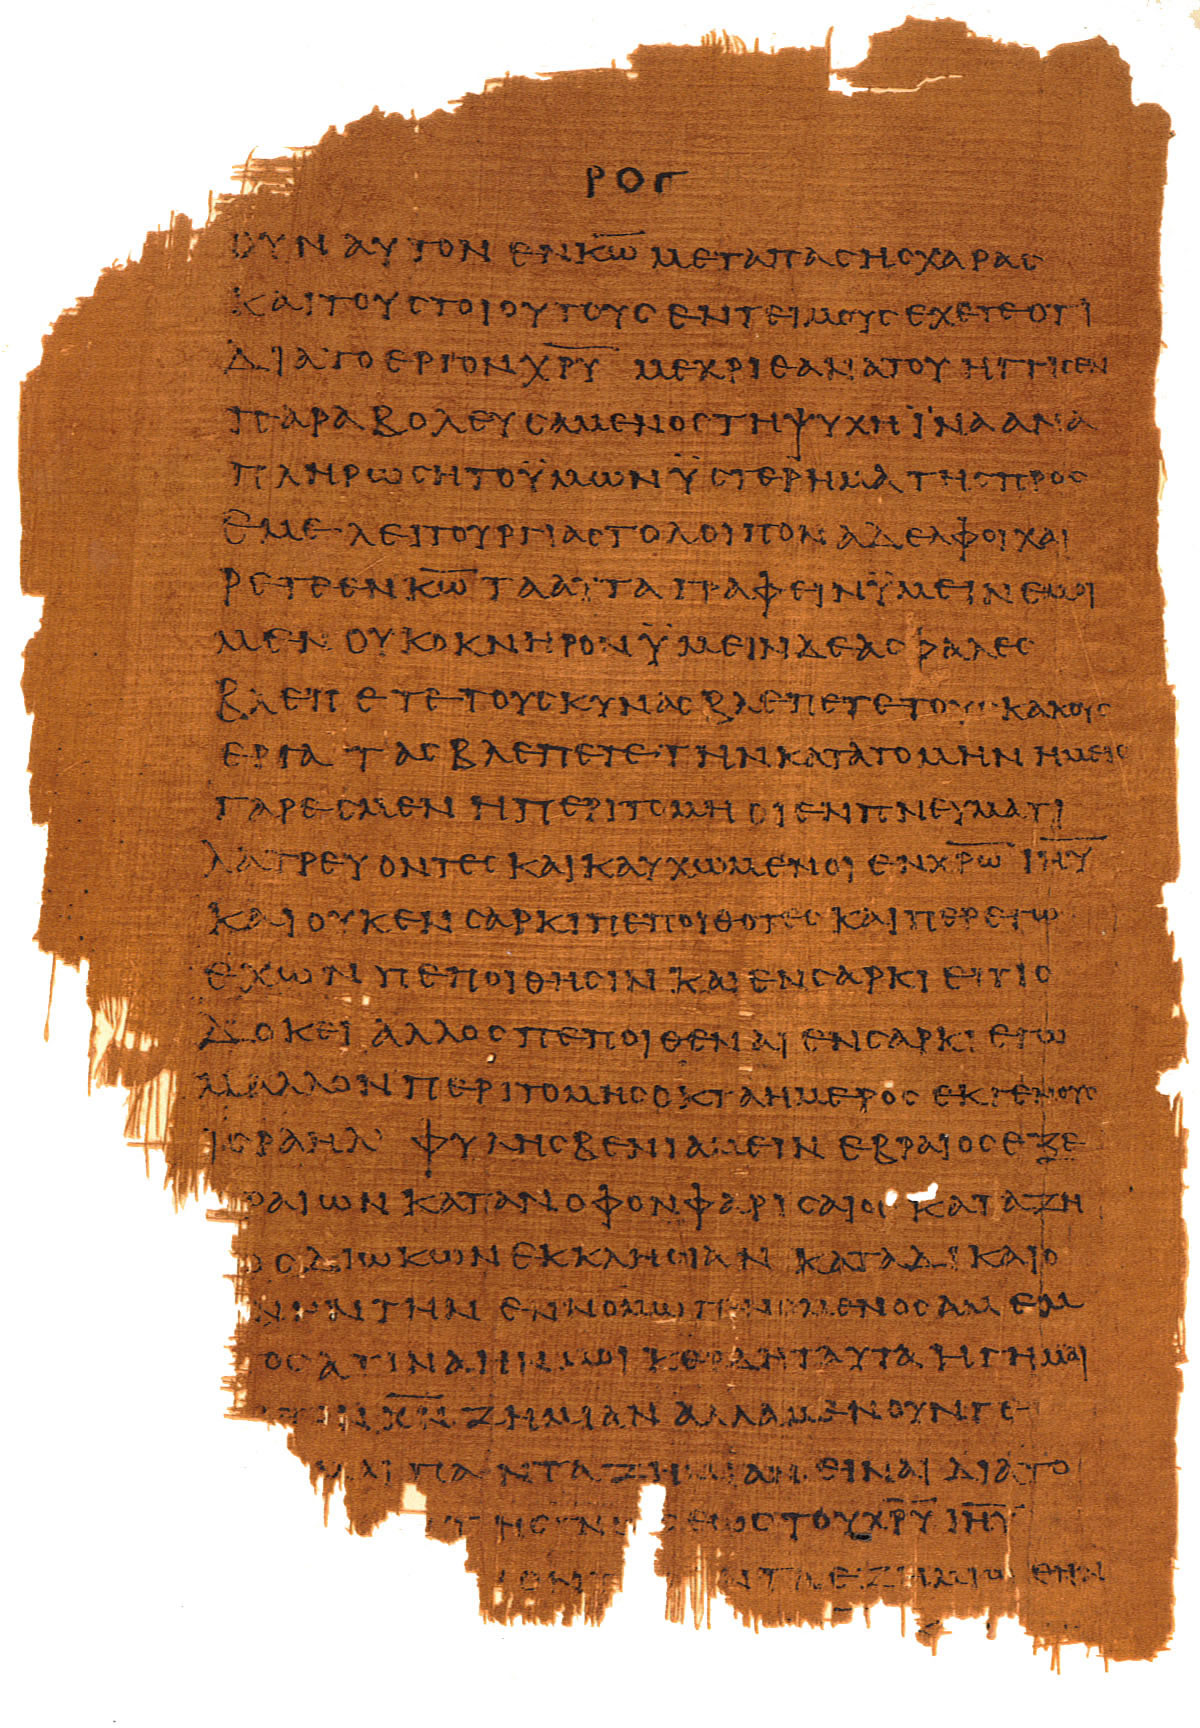 ΡΟΓ
ΟΥΝ ΑΥΤΟΝ ΕΝ Κ̅Ω̅ ΜΕΤΑ ΠΑϹΗϹ ΧΑΡΑϹ
ΚΑΙ ΤΟΥϹ ΤΟΙΟΥΤΟΥϹ ΕΝΤΕΙΜΟΥϹ ΕΧΕΤΕ ΟΤΙ
ΔΙΑ ΤΟ ΕΡΓΟΝ Χ̅Ρ̅Υ̅ ΜΕΧΡΙ ΘΑΝΑΤΟΥ ΗΓΓΙϹΕΝ
ΠΑΡΑΒΟΛΕΥϹΑΜΕΝΟϹ ΤΗ ΨΥΧΗ ΪΝΑ ΑΝΑ
ΠΛΗΡΩϹΗ ΤΟ ΫΜΩΝ ΫϹΤΕΡΗΜΑ ΤΗϹ ΠΡΟϹ
ΕΜΕ ΛΕΙΤΟΥΡΓΙΑϹ ΤΟ ΛΟΙΠΟΝ ΑΔΕΛΦΟΙ ΧΑΙ
ΡΕΤΕ ΕΝ Κ̅Ω̅ ΤΑ ΑΥΤΑ ΓΡΑΦΕΙΝ ΫΜΕΙΝ ΕΜΟΙ
ΜΕΝ ΟΥΚ ΟΚΝΗΡΟΝ ΫΜΕΙΝ ΔΕ ΑϹΦΑΛΕϹ
ΒΛΕΠΕΤΕ ΤΟΥϹ ΚΥΝΑϹ ΒΛΕΠΕΤΕ ΤΟΥϹ ΚΑΚΟΥϹ
ΕΡΓΑΤΑϹ ΒΛΕΠΕΤΕ ΤΗΝ ΚΑΤΑΤΟΜΗΝ ΗΜΕΙϹ
ΓΑΡ ΕϹΜΕΝ Η ΠΕΡΙΤΟΜΗ ΟΙ ΕΝ ΠΝΕΥΜΑΤΙ
ΛΑΤΡΕΥΟΝΤΕϹ ΚΑΙ ΚΑΥΧΩΜΕΝΟΙ ΕΝ Χ̅Ρ̅Ω̅ Ι̅Η̅Υ̅
ΚΑΙ ΟΥΚ ΕΝ ϹΑΡΚΙ ΠΕΠΟΙΘΟΤΕϹ ΚΑΙΠΕΡ ΕΓΩ
ΕΧΩΝ ΠΕΠΟΙΘΗϹΙΝ ΚΑΙ ΕΝ ϹΑΡΚΙ ΕΙ ΤΙϹ
ΔΟΚΕΙ ΑΛΛΟϹ ΠΕΠΟΙΘΕΝΑΙ ΕΝ ϹΑΡΚΙ ΕΓΩ
ΜΑΛΛΟΝ ΠΕΡΙΤΟΜΗϹ ΟΚΤΑΗΜΕΡΟϹ ΕΚ ΓΕΝΟΥϹ
ΙϹΡΑΗΛ ΦΥΛΗϹ ΒΕΝΙΑΜΕΙΝ ΕΒΡΑΙΟϹ ΕΞ Ε
ΡΑΙΩΝ ΚΑΤΑ ΝΟΦΟΝ ΦΑΡΙϹΑΙΟϹ ΚΑΤΑ ΖΗ
ΟϹ ΔΙΩΚΩΝ ΕΚΚΛΗϹΙΑΝ ΚΑΤΑ ΔΙΚΑΙΟ
ΝΗΝ ΤΗΝ ΕΝ ΝΟΜΩ ΓΕΝΟΜΕΝΟϹ ΑΜΕΜ
ΤΟϹ ΑΤΙΝΑ ΗΝ ΜΟΙ ΚΕΡΔΗ ΤΑΥΤΑ ΗΓΗΜΑΙ
Χ̅Ν̅ ΖΗΜΙΑΝ ΑΛΛΑ ΜΕΝΟΥΝΓΕ
ΜΑΙ ΠΑΝΤΑ ΖΗΜΙΑΝ ΕΙΝΑΙ ΔΙΑ ΤΟ
ΤΗϹ ΓΝΩϹΕΩϹ ΤΟΥ Χ̅Ρ̅Υ̅ Ι̅Η̅Υ̅
ΕΖΗΜΙΩΘΗΝ